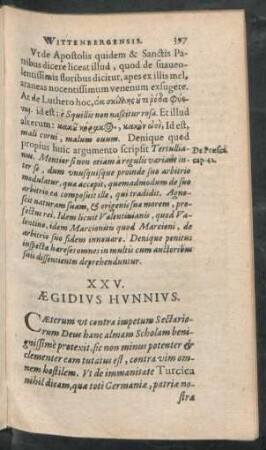 WITTENBERGENSIS. 597
Vt de Apostolis quidem & Sanctis Pa-
tribus dicere liceat illud, quod de suaueo-
lentissimis floribus dicitur, apes ex illis mel,
araneas nocentissimum venenum exsugere.
At de Luthero hoc, ἐκ σκίλλης ὐ τι ῥόδα φύε-
ται. id est: è Squillis non nascitur rosa. Et illud
alterum: κακῶ κόρακ, κακὸν ὠὸν, Id est,
mali corui, malum ouum. Denique quod
propius huic argumento scripsit Tertullia- De Præscri.
nus. Mentior si non etiam à regulis variant in- cap. 42.
ter se, dum vnusquisque proinde suo arbitrio
modulatur, qua accepit, quemadmodum de suo
arbitrio ea composuit ille, qui tradidit. Agno-
scit naturam suam, & originis sua morem, pro-
fectus rei. Idem licuit Valentinianis, quod Va-
lentino, idem Marcionitis quod Marcioni, de
arbitrio suo fidem innouare. Denique penitus
inspecta hæreses omnes in multis cum auctoribus
suis dissentientes deprehenduntur.
XXV.
ÆGIDIVS HVNNIVS.
Cæterum vt contra impetum Sectario-
rum Deus hanc almam Scholam beni-
gnissimè protexit. sic non minus potenter &
clementer eam tutatus est, contra vim om-
nem hostilem. Vt de immanitate Turcica
nihil dicam, qua toti Germaniæ, patriæ no-
stræ